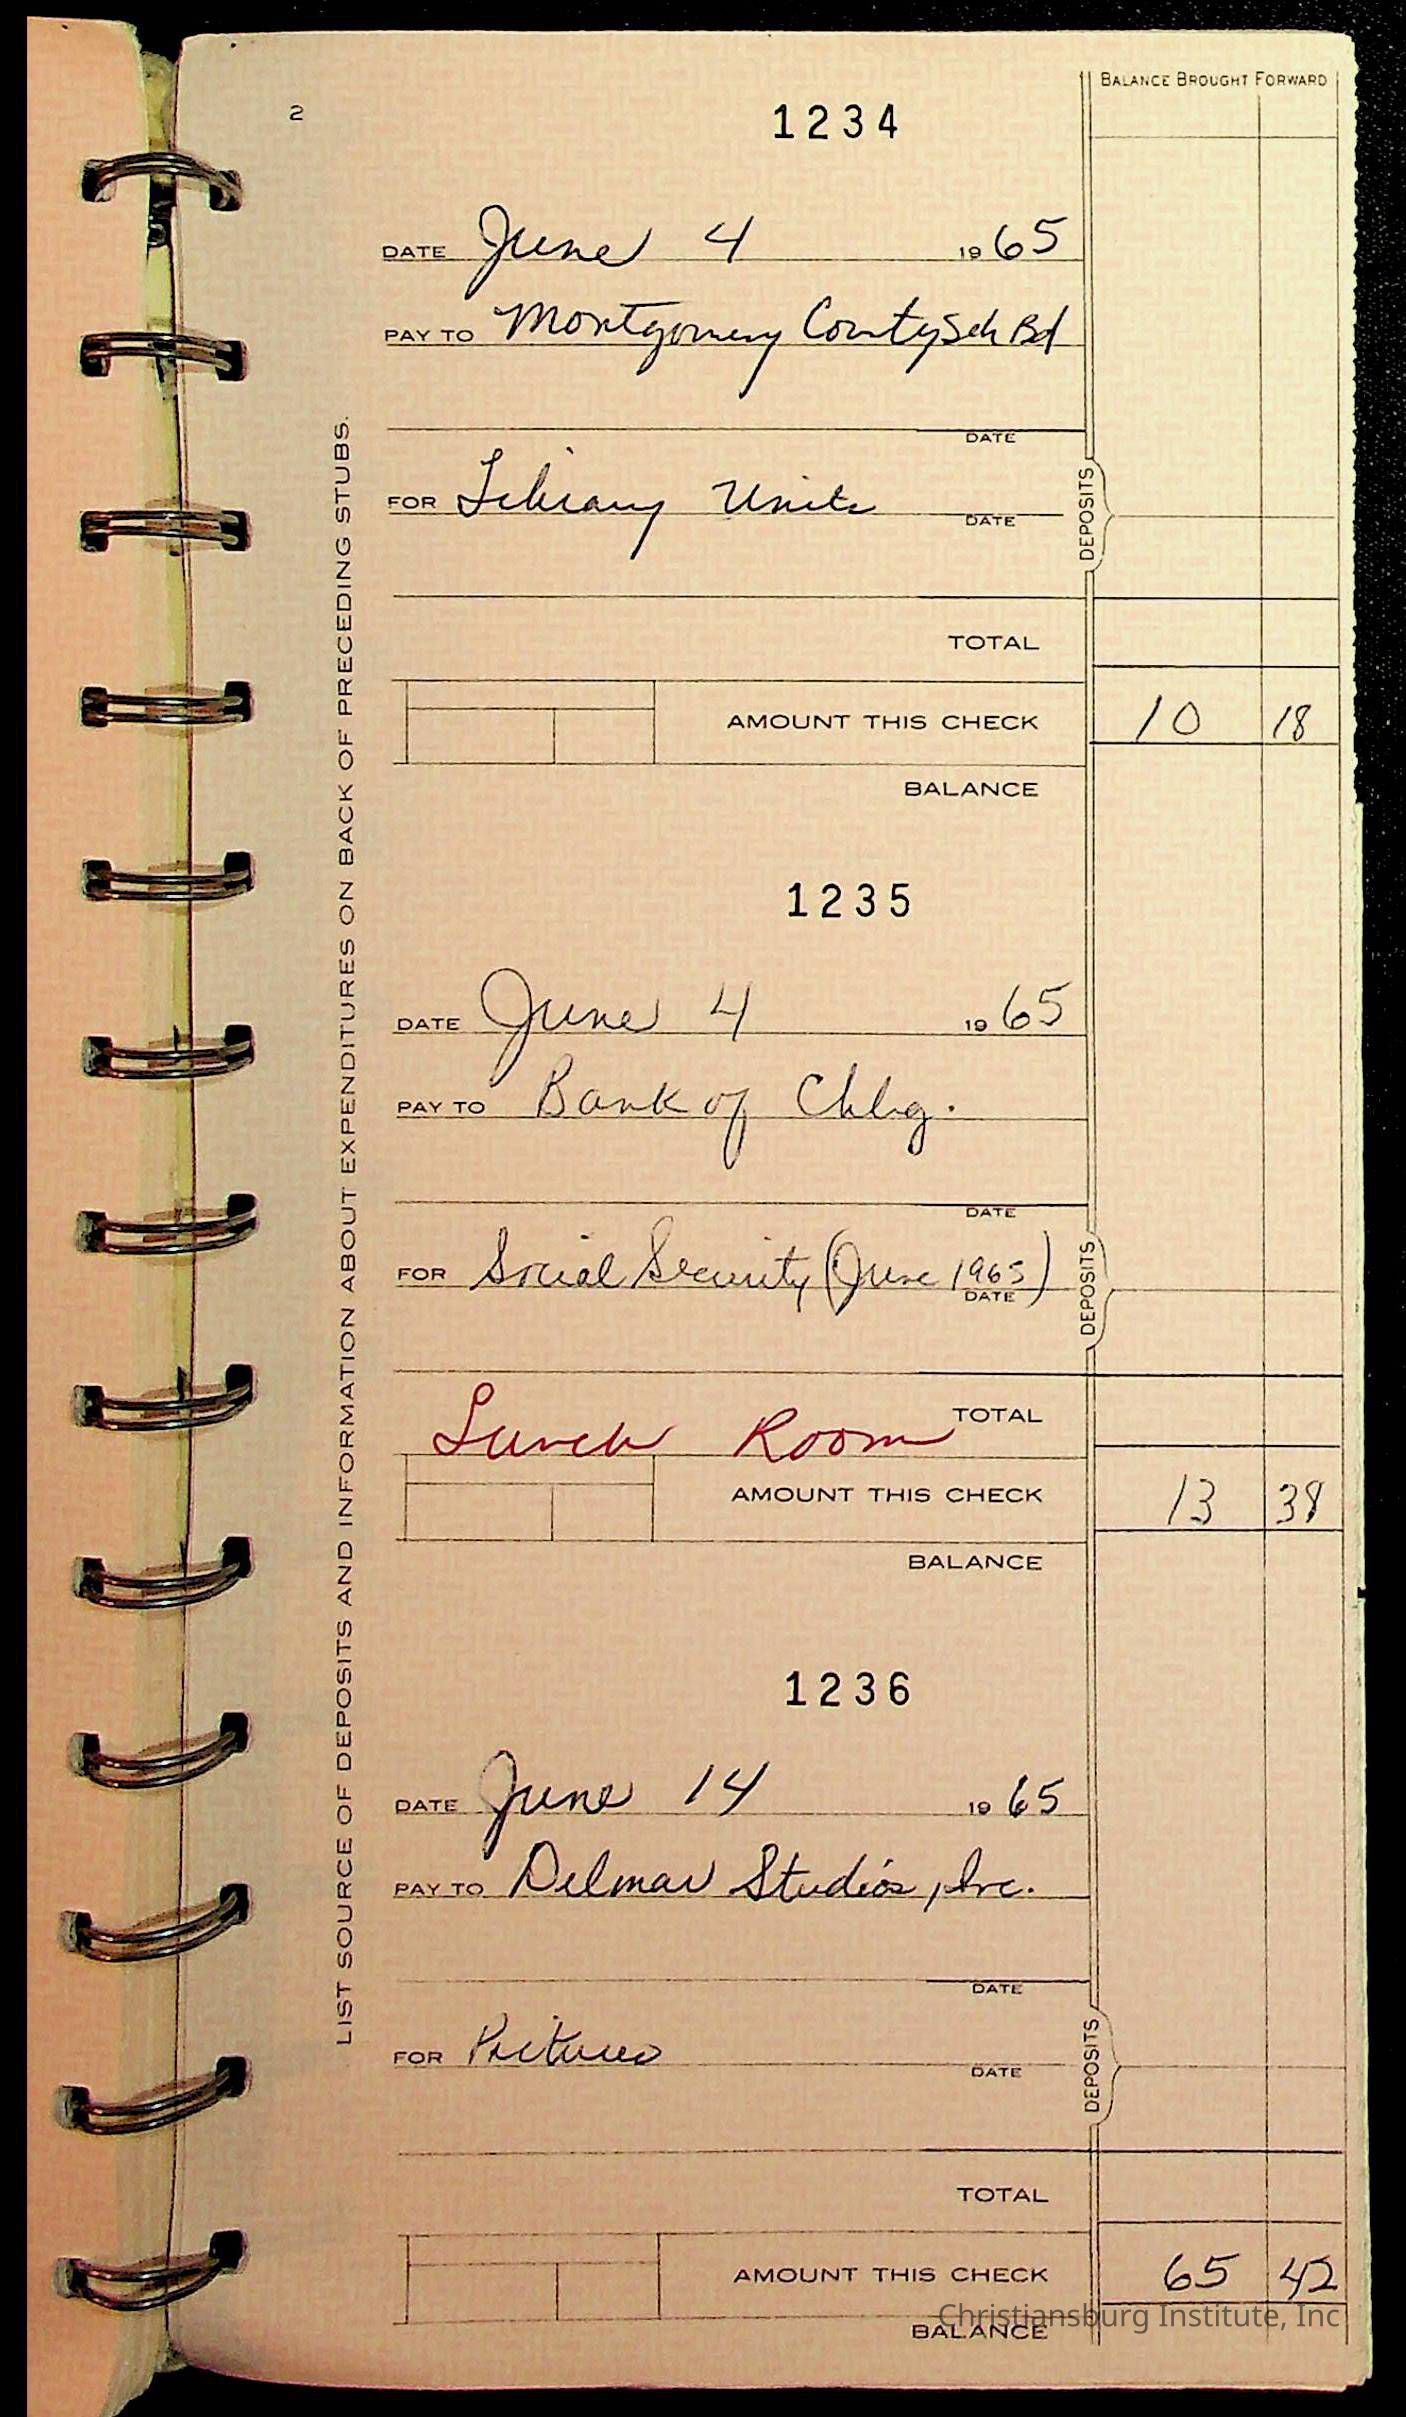 2
1234
BALANCE BROUGHT FORWARD
DATE June 4 1965
PAY TO Montgomery County Sch Bd
DATE
FOR Library Units
DATE
DEPOSITS
TOTAL
AMOUNT THIS CHECK 10 18
BALANCE
1235
DATE June 4 1965
PAY TO Bank of Chbg.
DATE
FOR Social Security (June 1965)
DATE
DEPOSITS
Lunch Room TOTAL
AMOUNT THIS CHECK 13 38
BALANCE
1236
DATE June 14 1965
PAY TO Delmar Studios, Inc.
DATE
FOR Pictures
DATE
DEPOSITS
TOTAL
AMOUNT THIS CHECK 65 42
BALANCE
LIST SOURCE OF DEPOSITS AND INFORMATION ABOUT EXPENDITURES ON BACK OF PRECEDING STUBS.
Christiansburg Institute, Inc